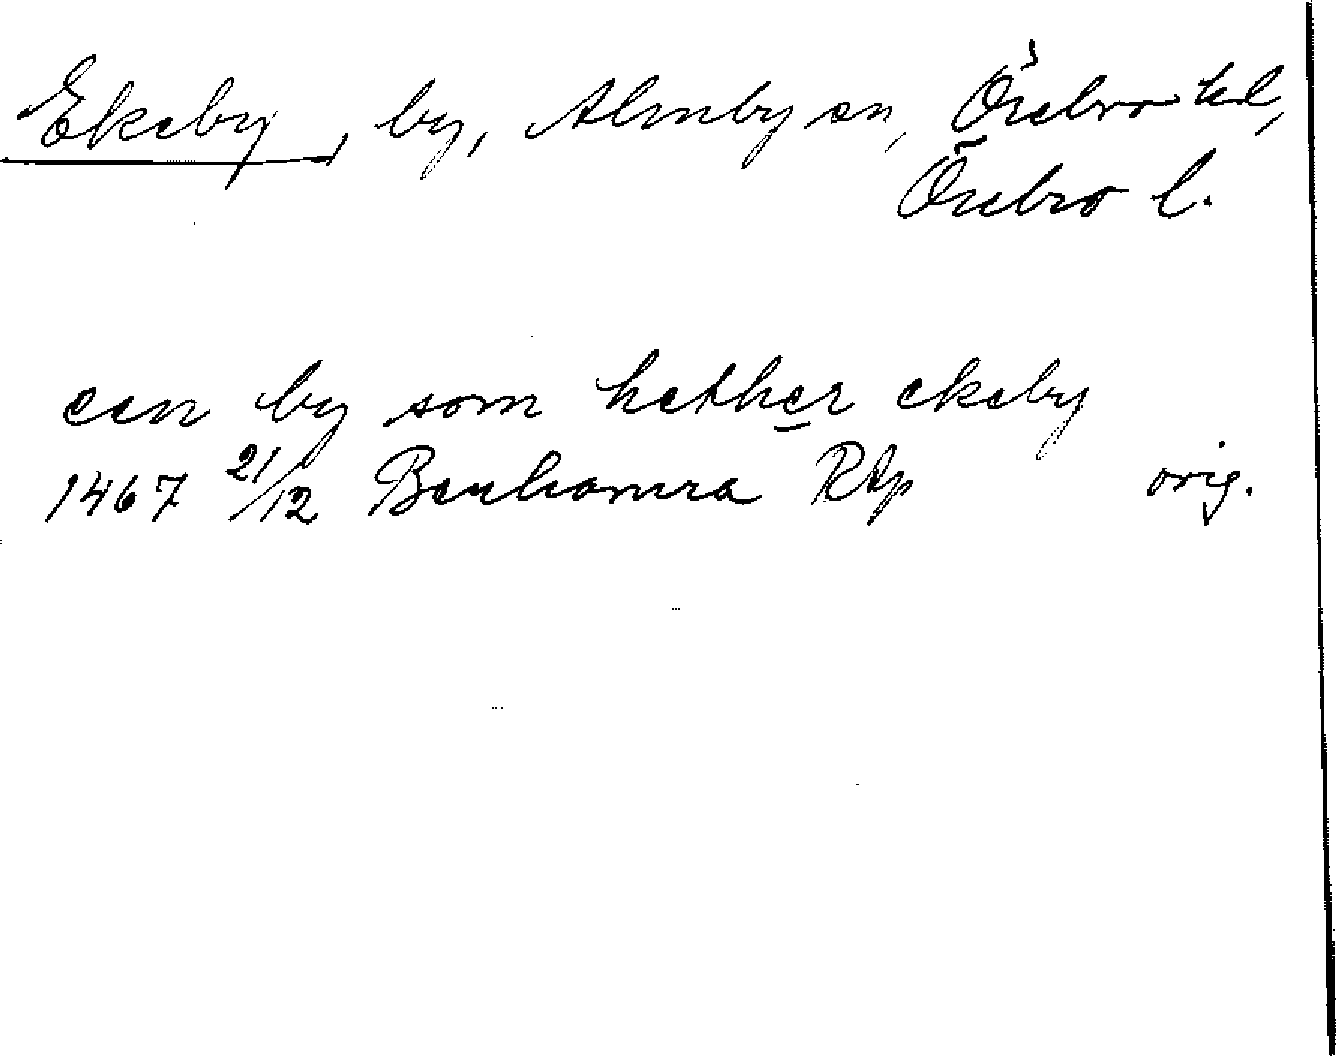 Ekeby, by, Almby sn, Örebro hd,
Örebro l.
een by som hether ekeby
1467 21/12 Benhamra RAp orig.